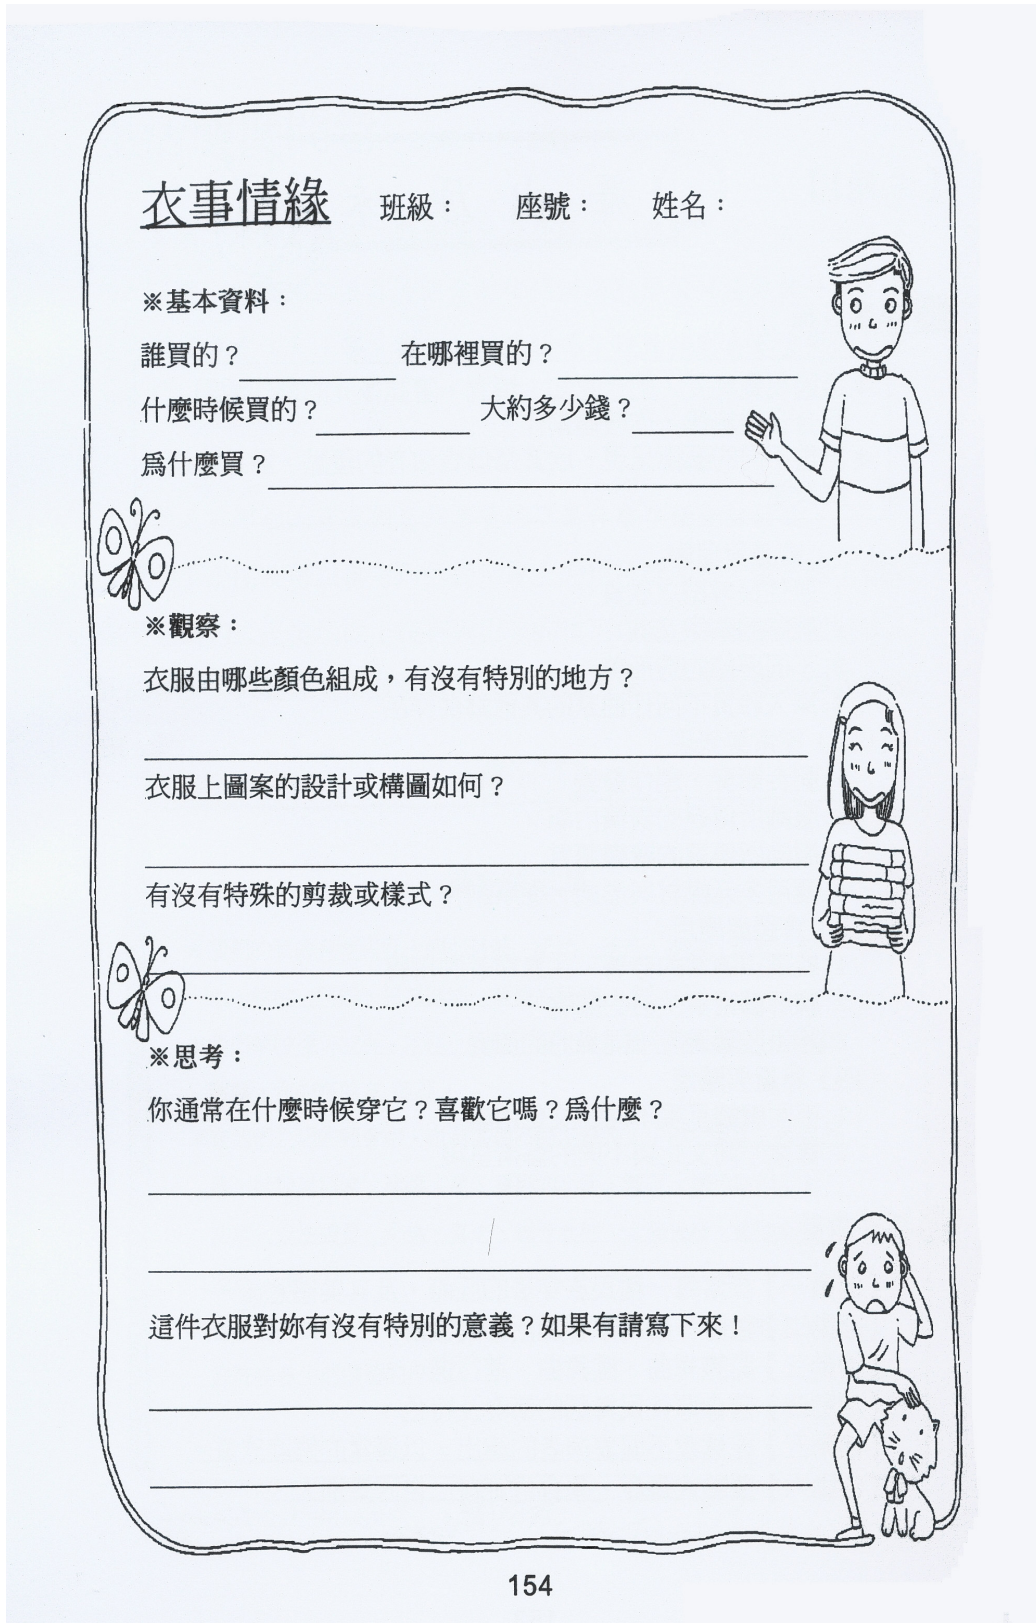 衣事情緣 班級： 座號： 姓名：
※基本資料：
誰買的？ 在哪裡買的？
什麼時候買的？ 大約多少錢？
爲什麼買？
※觀察：
衣服由哪些顏色組成，有沒有特別的地方？
衣服上圖案的設計或構圖如何？
有沒有特殊的剪裁或樣式？
※思考：
你通常在什麼時候穿它？喜歡它嗎？爲什麼？
這件衣服對妳有沒有特別的意義？如果有請寫下來！
154